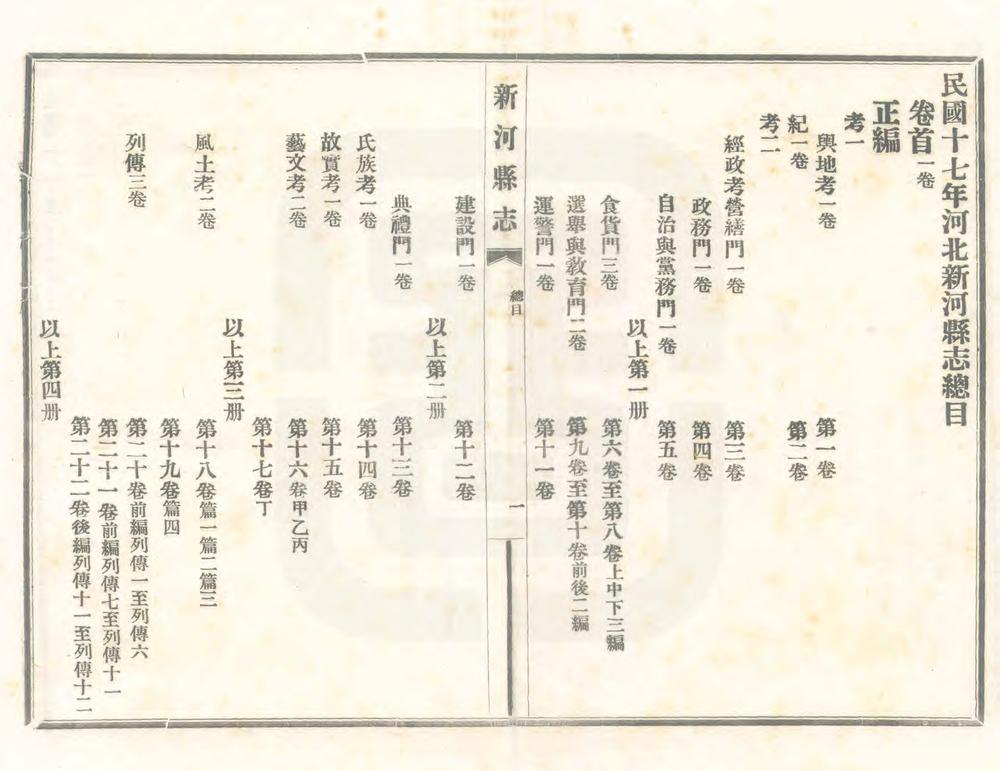 民國十七年河北新河縣志總目
卷首一卷
正編
考一
輿地考一卷 第一卷
紀一卷 第二卷
考二
經政考營繕門一卷 第三卷
政務門一卷 第四卷
自治與黨務門一卷 第五卷
以上第一册
食貨門三卷 第六卷至第八卷上中下三編
選舉與教育門二卷 第九卷至第十卷前後二編
運警門一卷 第十一卷
新河縣志 總目 一
建設門一卷 第十二卷
以上第二册
典禮門一卷 第十三卷
氏族考一卷 第十四卷
故實考一卷 第十五卷
藝文考二卷 第十六卷甲乙丙
第十七卷丁
以上第三册
風土考二卷 第十八卷篇一篇二篇三
第十九卷篇四
列傳三卷 第二十卷前編列傳一至列傳六
第二十一卷前編列傳七至列傳十一
第二十二卷後編列傳十一至列傳十二
以上第四册